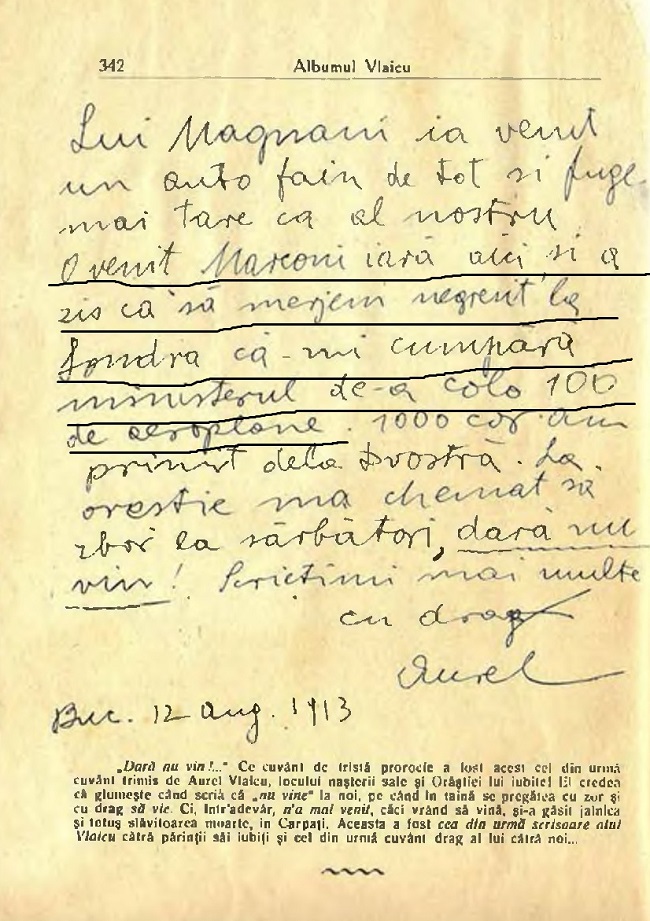 342
Albumul Vlaicu
Lui Magnani ia venit
un auto fain de tot si fuge
mai tare ca al nostru
O venit Marconi iară aici si a
zis că să merjem negreut la
Londra că-mi cumpără
ministerul de-a colo 100
de aeroplane. 1000 cor am
primit dela Dvostră. La
orestie ma chemat să
zbor la sărbători, dară nu
vin! Scrietimi mai multe
cu drag
Aurel
Buc. 12 aug. 1913
„Dară nu vin!..." Ce cuvânt de tristă prorocie a fost acest cel din urmă
cuvânt trimis de Aurel Vlaicu, locului nașterii sale și Orăștiei lui iubite! El credea
că glumește când scria că „nu vine" la noi, pe când în taină se pregătea cu zor și
cu drag să vie. Ci, într'adevăr, n'a mai venit, căci vrând să vină, și-a găsit jalnica
și totuș slăvitoarea moarte, în Carpați. Aceasta a fost cea din urmă scrisoare alui
Vlaicu cătră părinții săi iubiți și cel din urmă cuvânt drag al lui cătră noi...